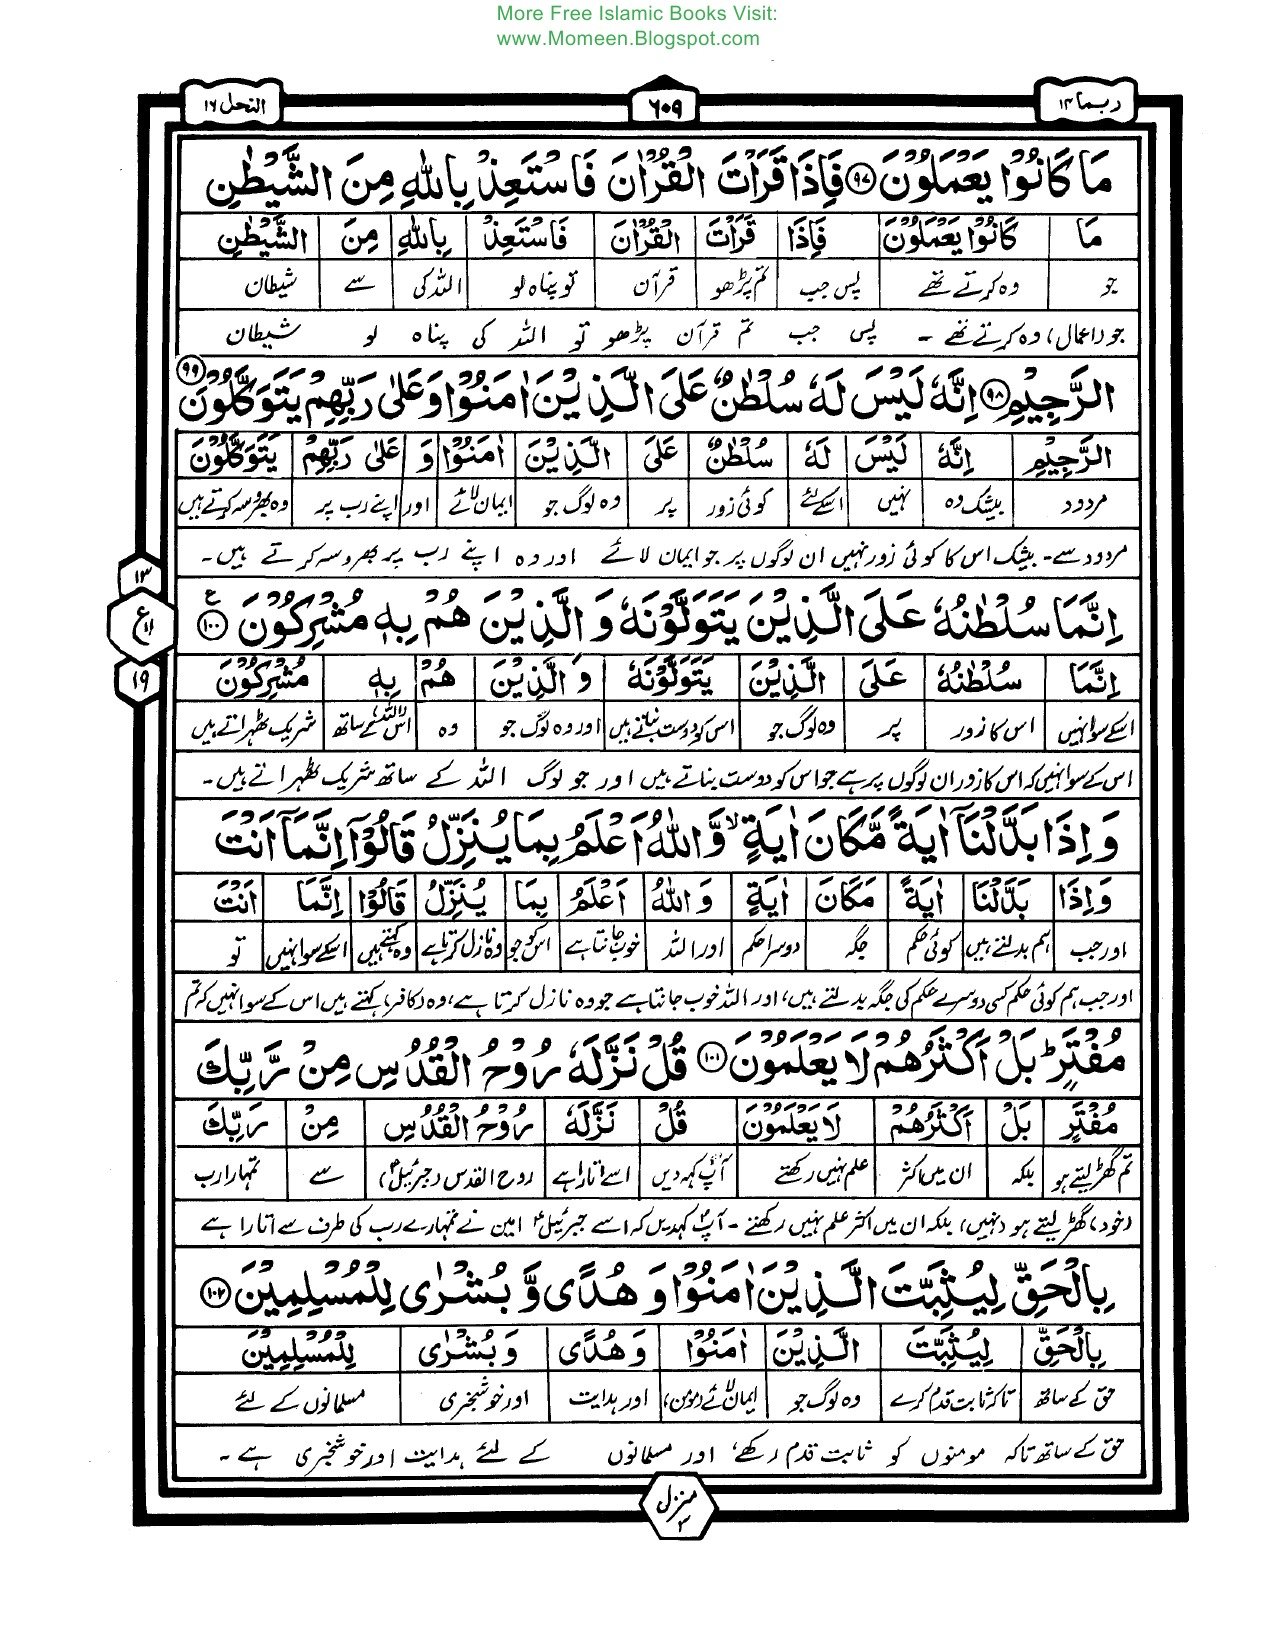 More Free Islamic Books Visit:
www.Momeen.Blogspot.com
ربما ۱۴
۶۰۹
النحل ۱۶
مَا كَانُوْا يَعْمَلُوْنَ ۹۷ فَاِذَا قَرَاْتَ الْقُرْاٰنَ فَاسْتَعِذْ بِاللّٰهِ مِنَ الشَّيْطٰنِ
مَا كَانُوْا يَعْمَلُوْنَ فَاِذَا قَرَاْتَ الْقُرْاٰنَ فَاسْتَعِذْ بِاللّٰهِ مِنَ الشَّيْطٰنِ
جو وہ کرتے تھے پس جب تم پڑھو قرآن تو پناہ لو اللہ کی سے شیطان
جو (اعمال) وہ کرتے تھے ۔ پس جب تم قرآن پڑھو تو اللہ کی پناہ لو شیطان
الرَّجِيْمِ ۹۸ اِنَّهٗ لَيْسَ لَهٗ سُلْطٰنٌ عَلَى الَّذِيْنَ اٰمَنُوْا وَعَلٰى رَبِّهِمْ يَتَوَكَّلُوْنَ ۹۹
الرَّجِيْمِ اِنَّهٗ لَيْسَ لَهٗ سُلْطٰنٌ عَلَى الَّذِيْنَ اٰمَنُوْا وَ عَلٰى رَبِّهِمْ يَتَوَكَّلُوْنَ
مردود بیشک وہ نہیں اسکے لئے کوئی زور پر وہ لوگ جو ایمان لائے اور اپنے رب پر وہ بھروسہ کرتے ہیں
مردود سے۔ بیشک اس کا کوئی زور نہیں ان لوگوں پر جو ایمان لائے اور وہ اپنے رب پر بھروسہ کرتے ہیں ۔
۱۳
ع
۱۱
۱۹
اِنَّمَا سُلْطٰنُهٗ عَلَى الَّذِيْنَ يَتَوَلَّوْنَهٗ وَ الَّذِيْنَ هُمْ بِهٖ مُشْرِكُوْنَ ۱۰۰ ع
اِنَّمَا سُلْطٰنُهٗ عَلَى الَّذِيْنَ يَتَوَلَّوْنَهٗ وَ الَّذِيْنَ هُمْ بِهٖ مُشْرِكُوْنَ
اسکے سوا نہیں اس کا زور پر وہ لوگ جو اس کو دوست بناتے ہیں اور وہ لوگ جو وہ اس (اللہ) کے ساتھ شریک ٹھہراتے ہیں
اس کے سوا نہیں کہ اس کا زور ان لوگوں پر ہے جو اس کو دوست بناتے ہیں اور جو لوگ اللہ کے ساتھ شریک ٹھہراتے ہیں ۔
وَ اِذَا بَدَّلْنَاۤ اٰيَةً مَّكَانَ اٰيَةٍ ۙ وَّاللّٰهُ اَعْلَمُ بِمَا يُنَزِّلُ قَالُوْۤا اِنَّمَاۤ اَنْتَ
وَ اِذَا بَدَّلْنَا اٰيَةً مَكَانَ اٰيَةٍ وَ اللّٰهُ اَعْلَمُ بِمَا يُنَزِّلُ قَالُوْا اِنَّمَا اَنْتَ
اور جب ہم بدلتے ہیں کوئی حکم جگہ دوسرا حکم اور اللہ خوب جانتا ہے اس کو جو وہ نازل کرتا ہے وہ کہتے ہیں اسکے سوا نہیں تو
اور جب ہم کوئی حکم کسی دوسرے حکم کی جگہ بدلتے ہیں، اور اللہ خوب جانتا ہے جو وہ نازل کرتا ہے، وہ (کافر) کہتے ہیں اس کے سوا نہیں کہ تم
مُفْتَرٍ ؕ بَلْ اَكْثَرُهُمْ لَا يَعْلَمُوْنَ ۱۰۱ قُلْ نَزَّلَهٗ رُوْحُ الْقُدُسِ مِنْ رَّبِّكَ
مُفْتَرٍ بَلْ اَكْثَرُهُمْ لَا يَعْلَمُوْنَ قُلْ نَزَّلَهٗ رُوْحُ الْقُدُسِ مِنْ رَبِّكَ
تم گھڑ لیتے ہو بلکہ ان میں اکثر علم نہیں رکھتے آپؐ کہہ دیں اسے اتارا ہے روح القدس (جبرئیلؑ) سے تمہارا رب
(خود) گھڑ لیتے ہو (نہیں) بلکہ ان میں اکثر علم نہیں رکھتے ۔ آپؐ کہدیں کہ اسے جبرئیلؑ امین نے تمہارے رب کی طرف سے اتارا ہے
بِالْحَقِّ لِيُثَبِّتَ الَّذِيْنَ اٰمَنُوْا وَ هُدًى وَّ بُشْرٰى لِلْمُسْلِمِيْنَ ۱۰۲
بِالْحَقِّ لِيُثَبِّتَ الَّذِيْنَ اٰمَنُوْا وَ هُدًى وَ بُشْرٰى لِلْمُسْلِمِيْنَ
حق کے ساتھ تاکہ ثابت قدم کرے وہ لوگ جو ایمان لائے (مومن) اور ہدایت اور خوشخبری مسلمانوں کے لئے
حق کے ساتھ تاکہ مومنوں کو ثابت قدم رکھے، اور مسلمانوں کے لئے ہدایت اور خوشخبری ہے ۔
منزل ۳